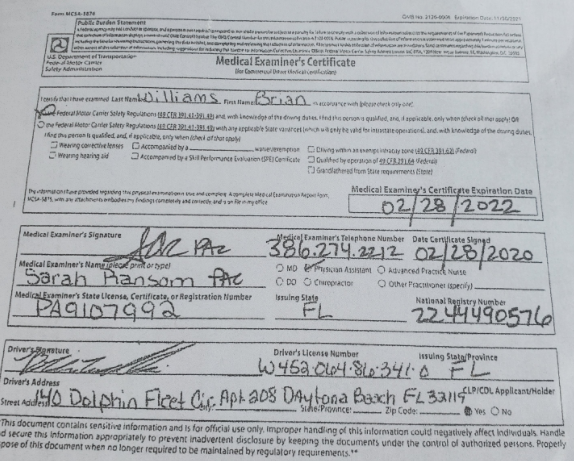 Form MCSA-5876
OMB No. 2126-0006 Expiration Date: 11/30/2021
Public Burden Statement
U.S. Department of Transportation
Federal Motor Carrier
Safety Administration
Medical Examiner's Certificate
(for Commercial Driver Medical Certification)
I certify that I have examined Last Name: Williams First Name: Brian in accordance with (please check only one):
the Federal Motor Carrier Safety Regulations (49 CFR 391.41-391.49) and, with knowledge of the driving duties, I find this person is qualified, and, if applicable, only when (check all that apply) OR
the Federal Motor Carrier Safety Regulations (49 CFR 391.41-391.49) with any applicable State variances (which will only be valid for intrastate operations), and, with knowledge of the driving duties,
I find this person is qualified, and, if applicable, only when (check all that apply):
Wearing corrective lenses Accompanied by a waiver/exemption Driving within an exempt intracity zone (49 CFR 391.62) (Federal)
Wearing hearing aid Accompanied by a Skill Performance Evaluation (SPE) Certificate Qualified by operation of 49 CFR 391.64 (Federal)
Grandfathered from State requirements (State)
The information I have provided regarding this physical examination is true and complete. A complete Medical Examination Report Form,
MCSA-5875, with any attachments embodies my findings completely and correctly, and is on file in my office.
Medical Examiner's Certificate Expiration Date
02/28/2022
Medical Examiner's Signature Medical Examiner's Telephone Number Date Certificate Signed
PAC 386.274.2212 02/28/2020
Medical Examiner's Name (please print or type) MD Physician Assistant Advanced Practice Nurse
Sarah Ransom PAC DO Chiropractor Other Practitioner (specify)
Medical Examiner's State License, Certificate, or Registration Number Issuing State National Registry Number
PA9107992 FL 2244490576
Driver's Signature Driver's License Number Issuing State/Province
W452.064.86.341.0 FL
Driver's Address CLP/CDL Applicant/Holder
Street Address: 140 Dolphin Fleet Cir. Apt 208 Daytona Beach FL 32119
State/Province: Zip Code: Yes No
**This document contains sensitive information and is for official use only. Improper handling of this information could negatively affect individuals. Handle
and secure this information appropriately to prevent inadvertent disclosure by keeping the documents under the control of authorized persons. Properly
dispose of this document when no longer required to be maintained by regulatory requirements.**